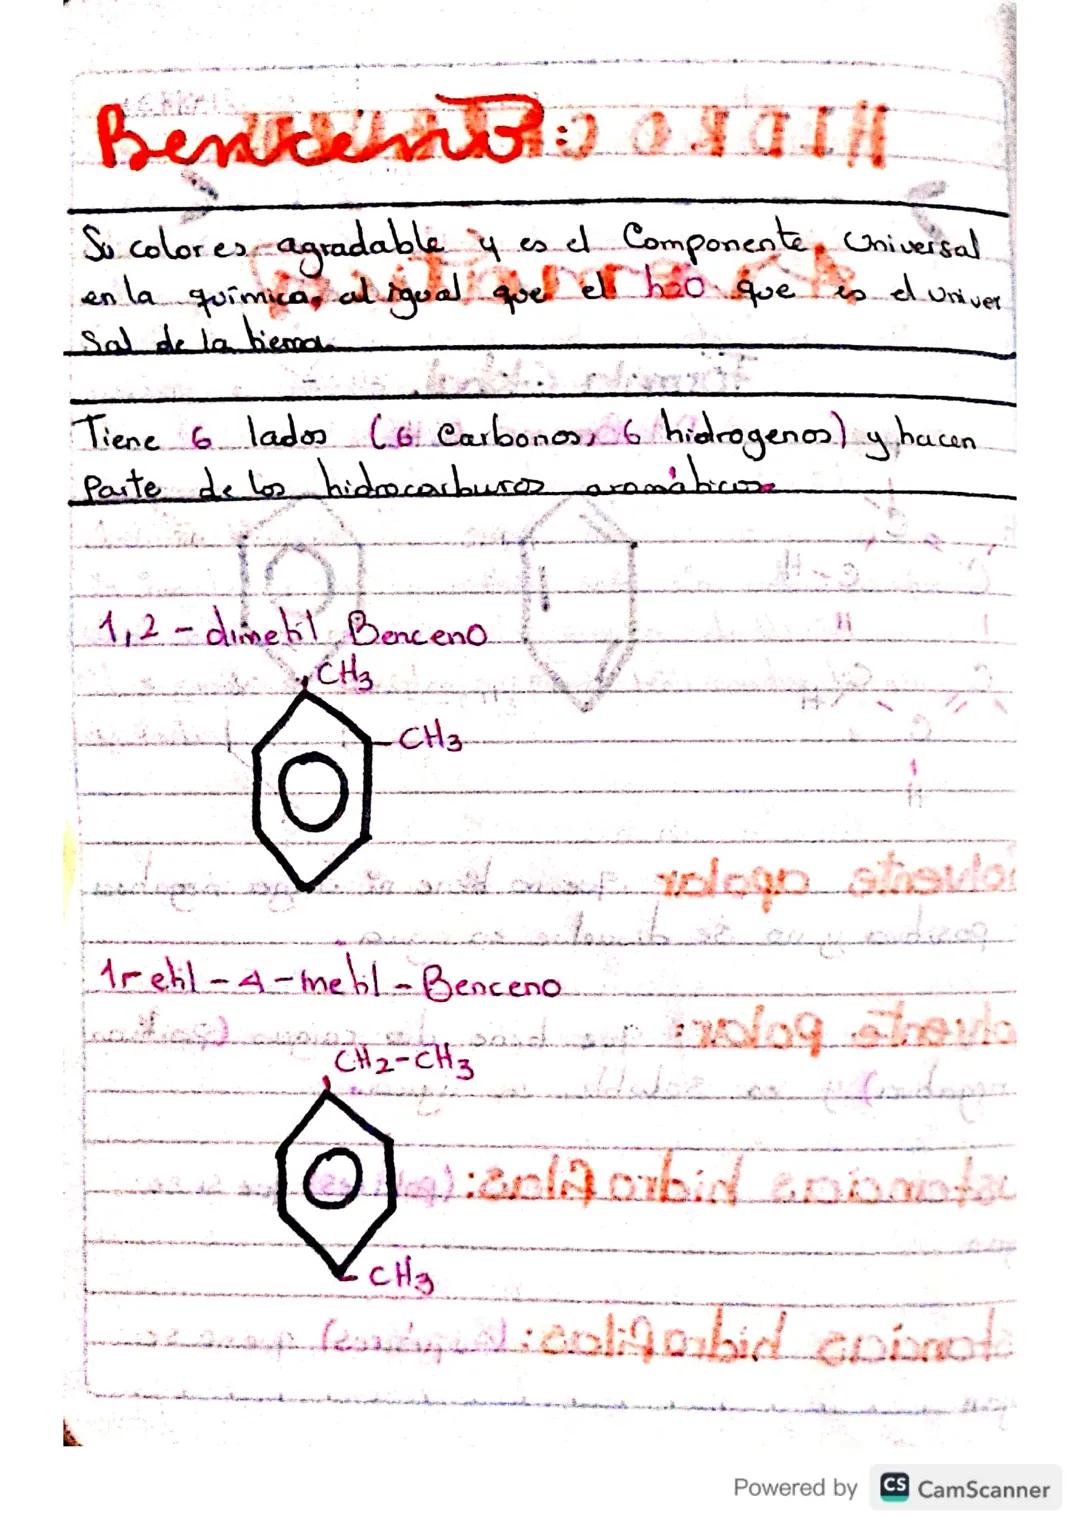 Benceno:
Su color es agradable y es el Componente Universal
en la química, al igual que el h2O que es el univer
sal de la tierra.
Tiene 6 lados (6 Carbonos, 6 hidrogenos) y hacen
Parte de los hidrocarburos aromáticos.
1,2 - dimetil Benceno
CH3
CH3
1-etil - 4 - metil - Benceno
CH2-CH3
CH3
Powered by CS CamScanner